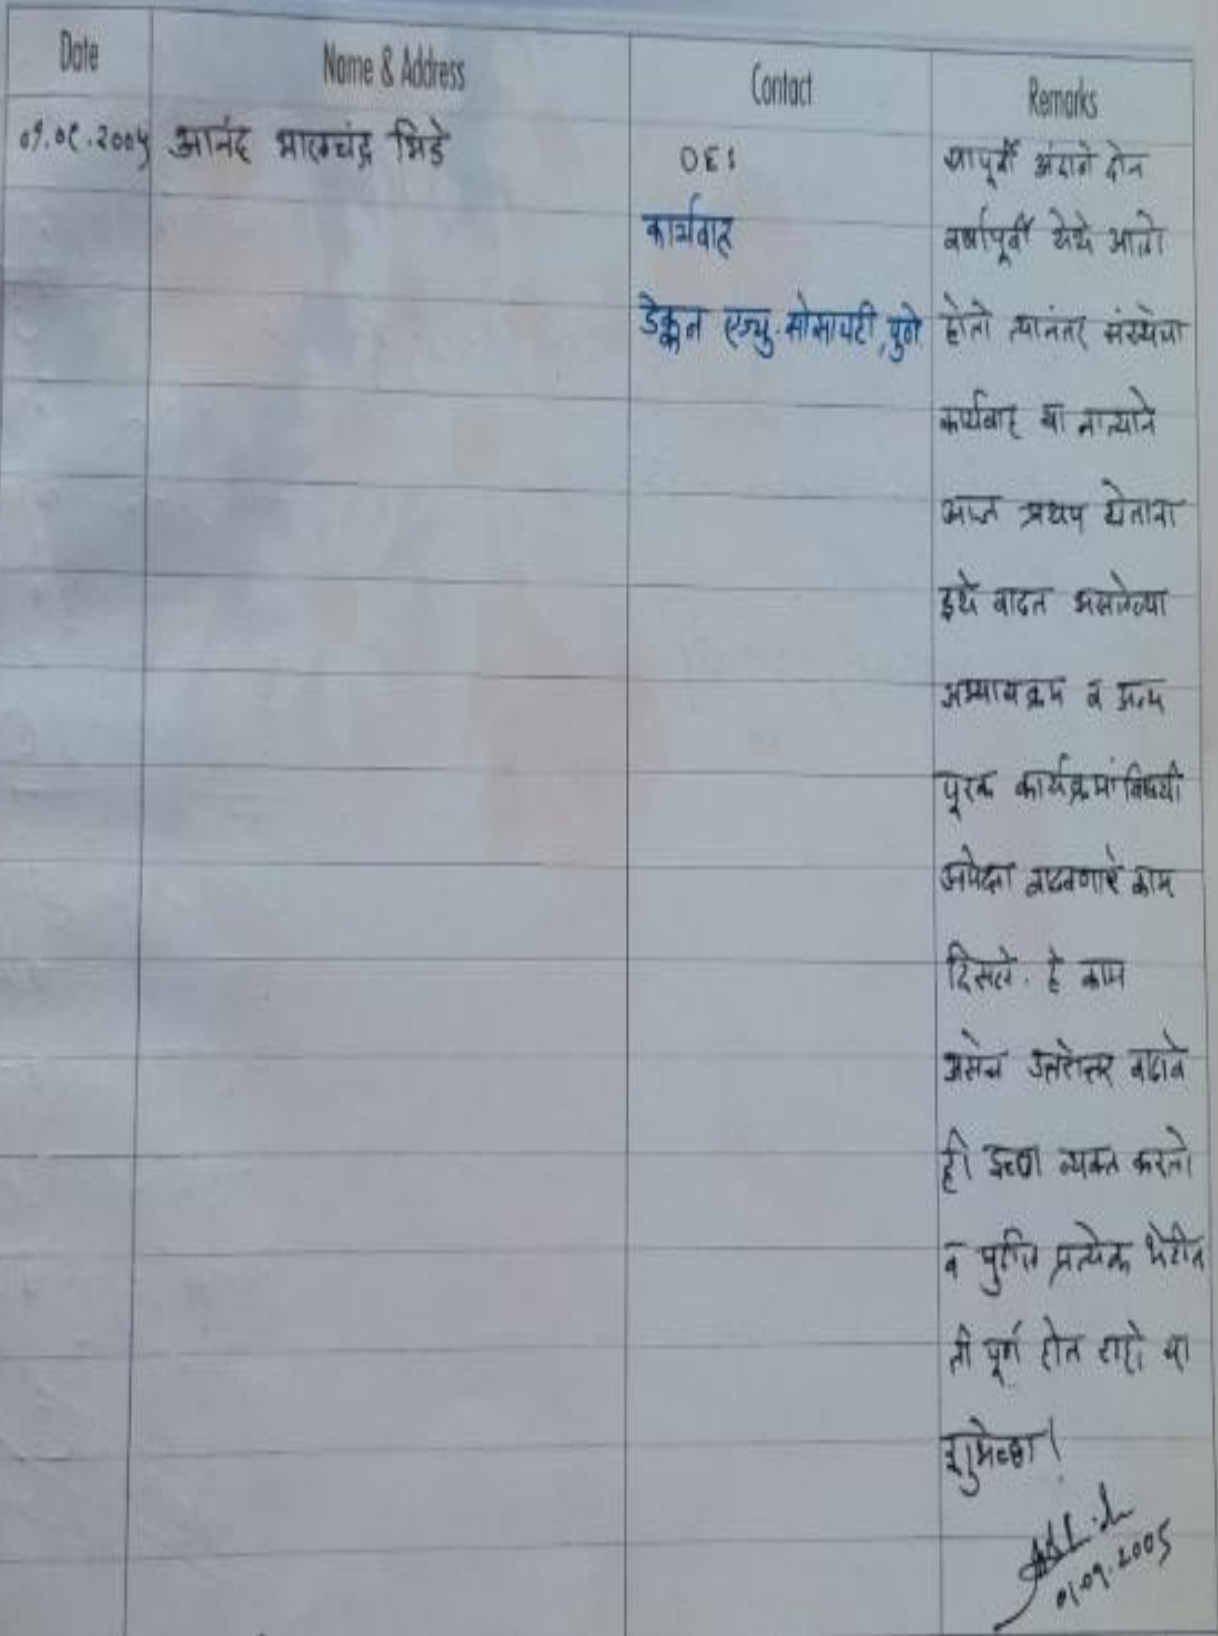 Date Name & Address Contact Remarks
०१.०९.२००५ आनंद भालचंद्र भिडे DES यापूर्वी अंदाजे दोन
कार्यवाह वर्षापूर्वी येथे आलो
डेक्कन एज्यु. सोसायटी, पुणे होतो त्यानंतर संस्थेचा
कार्यवाह या नात्याने
आज प्रथम येताना
इथे वाढत असलेल्या
अभ्यासक्रम व अन्य
पूरक कार्यक्रमांविषयी
अपेक्षा वाढवणारे काम
दिसले. हे काम
असेच उत्तरोत्तर वाढावे
ही इच्छा व्यक्त करतो
व पुढील प्रत्येक भेटीत
ती पूर्ण होत राहो या
शुभेच्छा!
01.09.2005